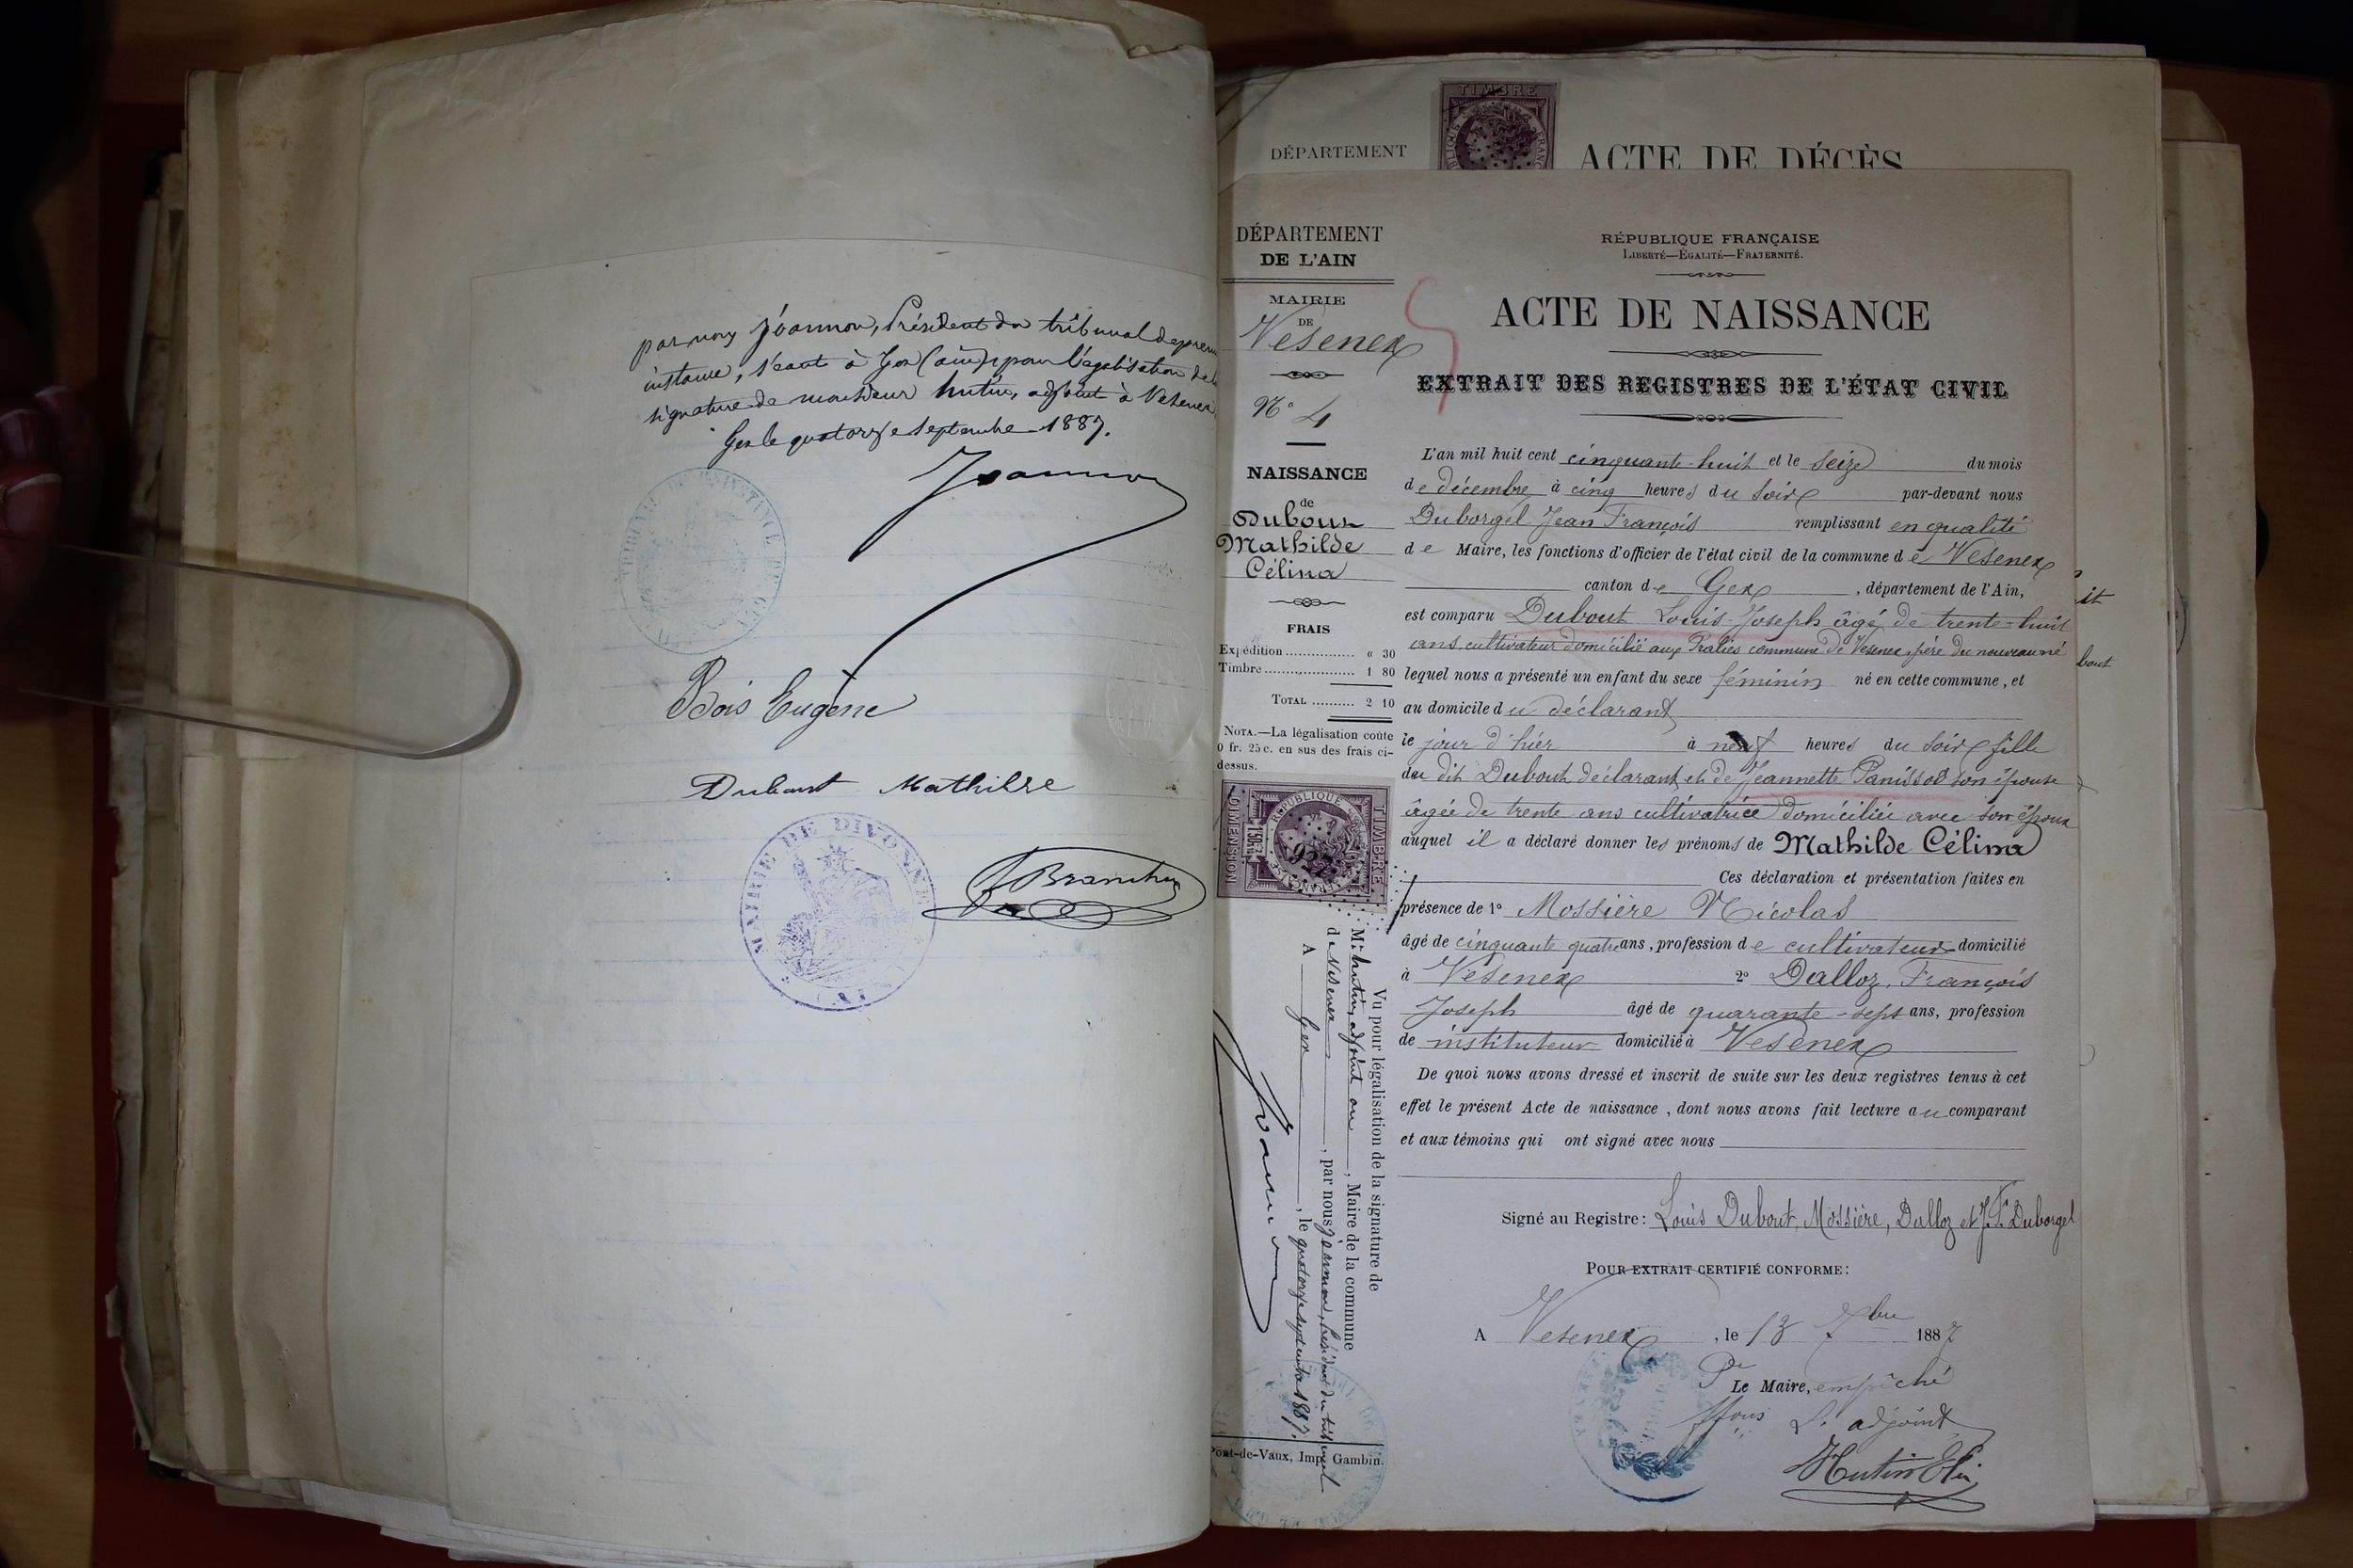 par nous Joannon, Président du tribunal de prem
instance, séant à Gex (ain), pour légalisation de la
signature de monsieur hutin, adjoint à Vesenex,
Gex le quatorze septembre 1887.
Joannon
Bois Eugène
Dubout Mathilde
MAIRIE DE DIVONNE
(AIN)
Branchu
DÉPARTEMENT
TIMBRE
ACTE DE DÉCÈS
DÉPARTEMENT
DE L'AIN
MAIRIE
DE
Vesenex
N° 4
NAISSANCE
de
Dubout
Mathilde
Célina
FRAIS
Expédition « 30
Timbre 1 80
TOTAL 2 10
NOTA.—La légalisation coûte
0 fr. 25 c. en sus des frais ci-
dessus.
TIMBRE
RÉPUBLIQUE FRANÇAISE
DIMENSION
Vu pour légalisation de la signature de
Mr hutin, adjoint au, Maire de la commune
de Vesenex, par nous Joannon, Président du tribunal
A Gex, le quatorze septembre 1887.
Joannon
Pont-de-Vaux, Imp. Gambin.
RÉPUBLIQUE FRANÇAISE
LIBERTÉ—ÉGALITÉ—FRATERNITÉ.
ACTE DE NAISSANCE
EXTRAIT DES REGISTRES DE L'ÉTAT CIVIL
L'an mil huit cent cinquante-huit et le seize du mois
de décembre à cinq heures du soir par-devant nous
Duborgel Jean François remplissant en qualité
de Maire, les fonctions d'officier de l'état civil de la commune de Vesenex
canton de Gex, département de l'Ain,
est comparu Dubout Louis-Joseph âgé de trente-huit
ans, cultivateur domicilié aux Pralies commune de Vesenex, père du nouveau né
lequel nous a présenté un enfant du sexe féminin né en cette commune, et
au domicile du déclarant
le jour d'hier à neuf heures du soir fille
du dit Dubout déclarant et de Jeannette Panissod son épouse
âgée de trente ans cultivatrice domiciliée avec son époux
auquel il a déclaré donner les prénoms de Mathilde Célina
Ces déclaration et présentation faites en
présence de 1° Mossière Nicolas
âgé de cinquante quatre ans, profession de cultivateur domicilié
à Vesenex 2° Dalloz, François
Joseph âgé de quarante-sept ans, profession
de instituteur domicilié à Vesenex
De quoi nous avons dressé et inscrit de suite sur les deux registres tenus à cet
effet le présent Acte de naissance, dont nous avons fait lecture au comparant
et aux témoins qui ont signé avec nous
Signé au Registre: Louis Dubout, Mossière, Dalloz et J. F. Duborgel
POUR EXTRAIT CERTIFIÉ CONFORME:
A Vesenex, le 13 7bre 1887
Pr Le Maire, empêché
L'adjoint
Hutin
it
bout